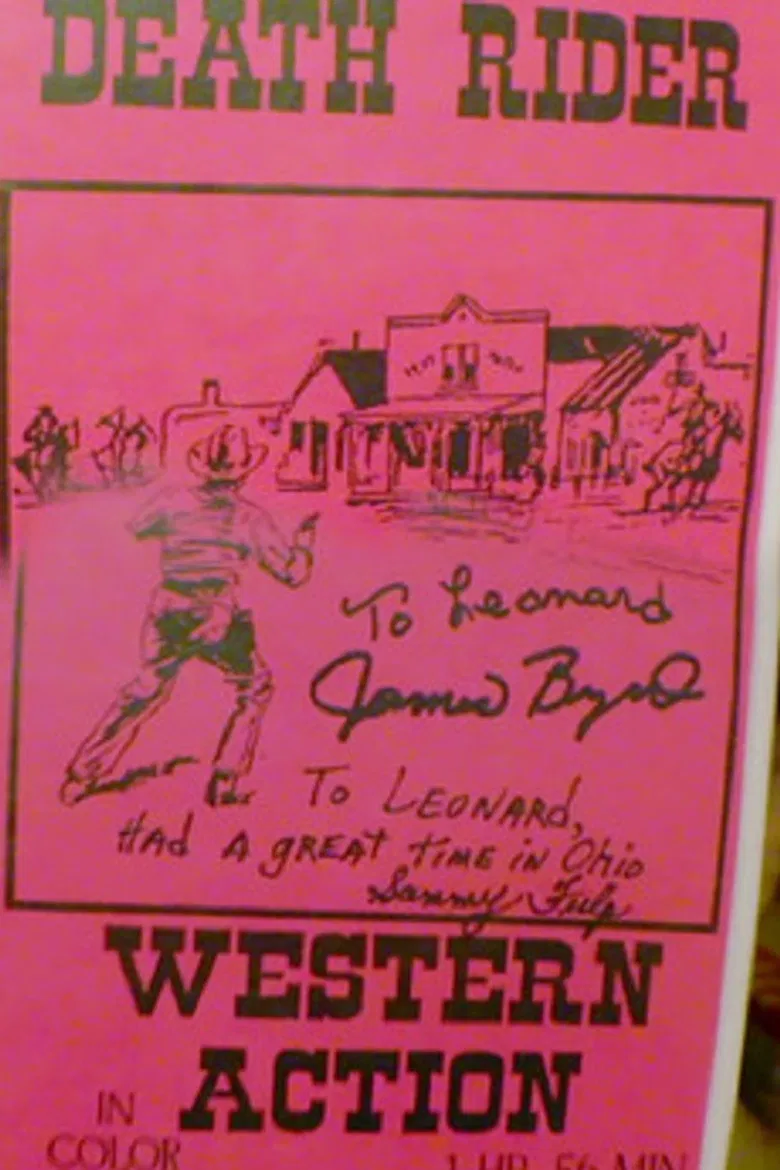 DEATH RIDER
To Leonard
James Byrd
To LEONARd,
HAd A gREAT TiME iN Ohio
Sammy Fulp
WESTERN
ACTION
IN
COLOR
1 HR 56 MIN